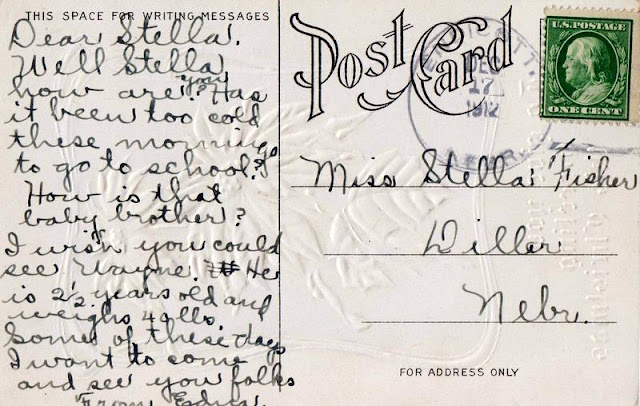 THIS SPACE FOR WRITING MESSAGES
Dear Stella.
Well Stella
how are you? Has
it been too cold
these mornings
to go to school?
How is that
baby brother?
I wish you could
see Wayne. He
is 2½ years old and
weighs 40 lbs.
Some of these days
I want to come
and see you folks
From Edna.
Post Card
ENDICOTT,
DEC
17
1912
NEBR.
U.S. POSTAGE
ONE CENT
Miss Stella Fisher
Diller
Nebr.
FOR ADDRESS ONLY